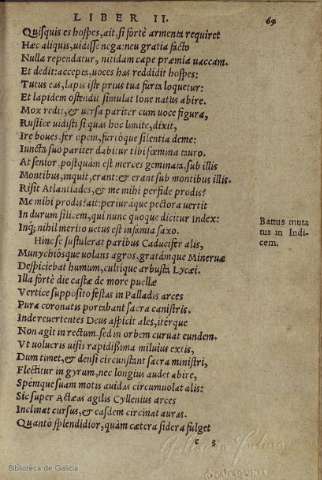 LIBER II.
69
Quisquis es hospes, ait, si fortè armenta requiret
Hæc aliquis, uidisse nega: neu gratia facto
Nulla rependatur, nitidam cape præmia uaccam.
Et dedit: accepta, uoces has reddidit hospes:
Tutus eas, lapis iste prius tua furta loquetur:
Et lapidem ostendit. simulat Ioue natus abire.
Mox redit, & uersa pariter cum uoce figura,
Rustice uidisti si quas hoc limite, dixit,
Ire boues: fer opem, furtoque silentia deme:
Iuncta suo pariter dabitur tibi fœmina tauro.
At senior, postquàm est merces geminata, sub illis
Montibus, inquit, erunt: & erant sub montibus illis.
Risit Atlantiades, & me mihi perfide prodis?
Me mihi prodis? ait: periuraque pectora uertit
In durum silicem, qui nunc quoque dicitur Index:
Inq; nihil merito uetus est infamia saxo.
Battus muta
tus in Indi-
cem.
Hinc se sustulerat paribus Caducifer alis,
Munychiosque uolans agros, gratámque Mineruæ
Despiciebat humum, cultique arbusta Lycæi.
Illa fortè die castæ de more puellæ
Vertice supposito festas in Palladis arces
Pura coronatis portabant sacra canistris.
Inde reuertentes Deus aspicit ales, itérque
Non agit in rectum, sed in orbem curuat eundem.
Vt uolucris uisis rapidissima miluius extis,
Dum timet, & densi circunstant sacra ministri,
Flectitur in gyrum, nec longius audet abire,
Spemque suam motis auidus circumuolat alis:
Sic super Actæas agilis Cyllenius arces
Inclinat cursus, & easdem circinat auras.
Quantò splendidior, quàm cætera sidera fulget
c 5
Biblioteca de Galicia